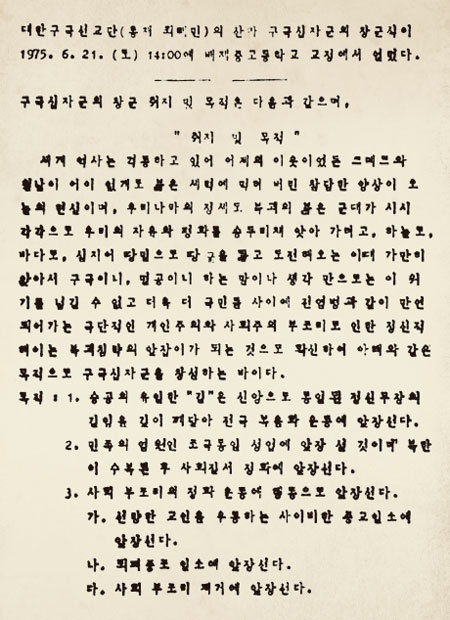 대한구국선교단(총재 최태민)의 산하 구국십자군의 창군식이
1975. 6. 21. (토) 14:00에 배재중고등학교 교정에서 열렸다.
구국십자군의 창군 취지 및 목적은 다음과 같으며,
" 취지 및 목적 "
세계 역사는 격동하고 있어 어제의 이웃이었든 크메르와
월남이 어이 없게도 붉은 세력에 먹혀 버린 참담한 양상이 오
늘의 현실이며, 우리나라의 정세도 북괴의 붉은 군대가 시시
각각으로 우리의 자유와 평화를 송두리채 앗아 가려고, 하늘로,
바다로, 심지어 땅밑으로 땅굴을 뚫고 도전해오는 이때 가만히
앉아서 구국이니, 멸공이니 하는 말이나 생각 만으로는 이 위
기를 넘길 수 없고 더욱 더 국민들 사이에 전염병과 같이 만연
되어가는 극단적인 개인주의와 사회주의 부조리로 인한 정신적
해이는 북괴침략의 앞잡이가 되는 것으로 확신하여 아래와 같은
목적으로 구국십자군을 창설하는 바이다.
목적 : 1. 승공의 유일한 "길"은 신앙으로 통일된 정신무장의
길임을 깊이 깨달아 전국 복음화 운동에 앞장선다.
2. 민족의 염원인 조국통일 성업에 앞장 설 것이며 북한
이 수복된 후 사회질서 정화에 앞장선다.
3. 사회 부조리의 정화 운동에 행동으로 앞장선다.
가. 선량한 교인을 우롱하는 사이비한 종교일소에
앞장선다.
나. 퇴폐풍조 일소에 앞장선다.
다. 사회 부조리 제거에 앞장선다.